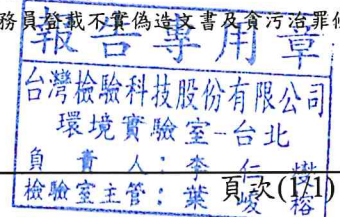 務員登載不實偽造文書及貪污治罪條
報告專用章
台灣檢驗科技股份有限公司
環境實驗室-台北
負責人:李仁
檢驗室主管:葉
頁次(1/1)